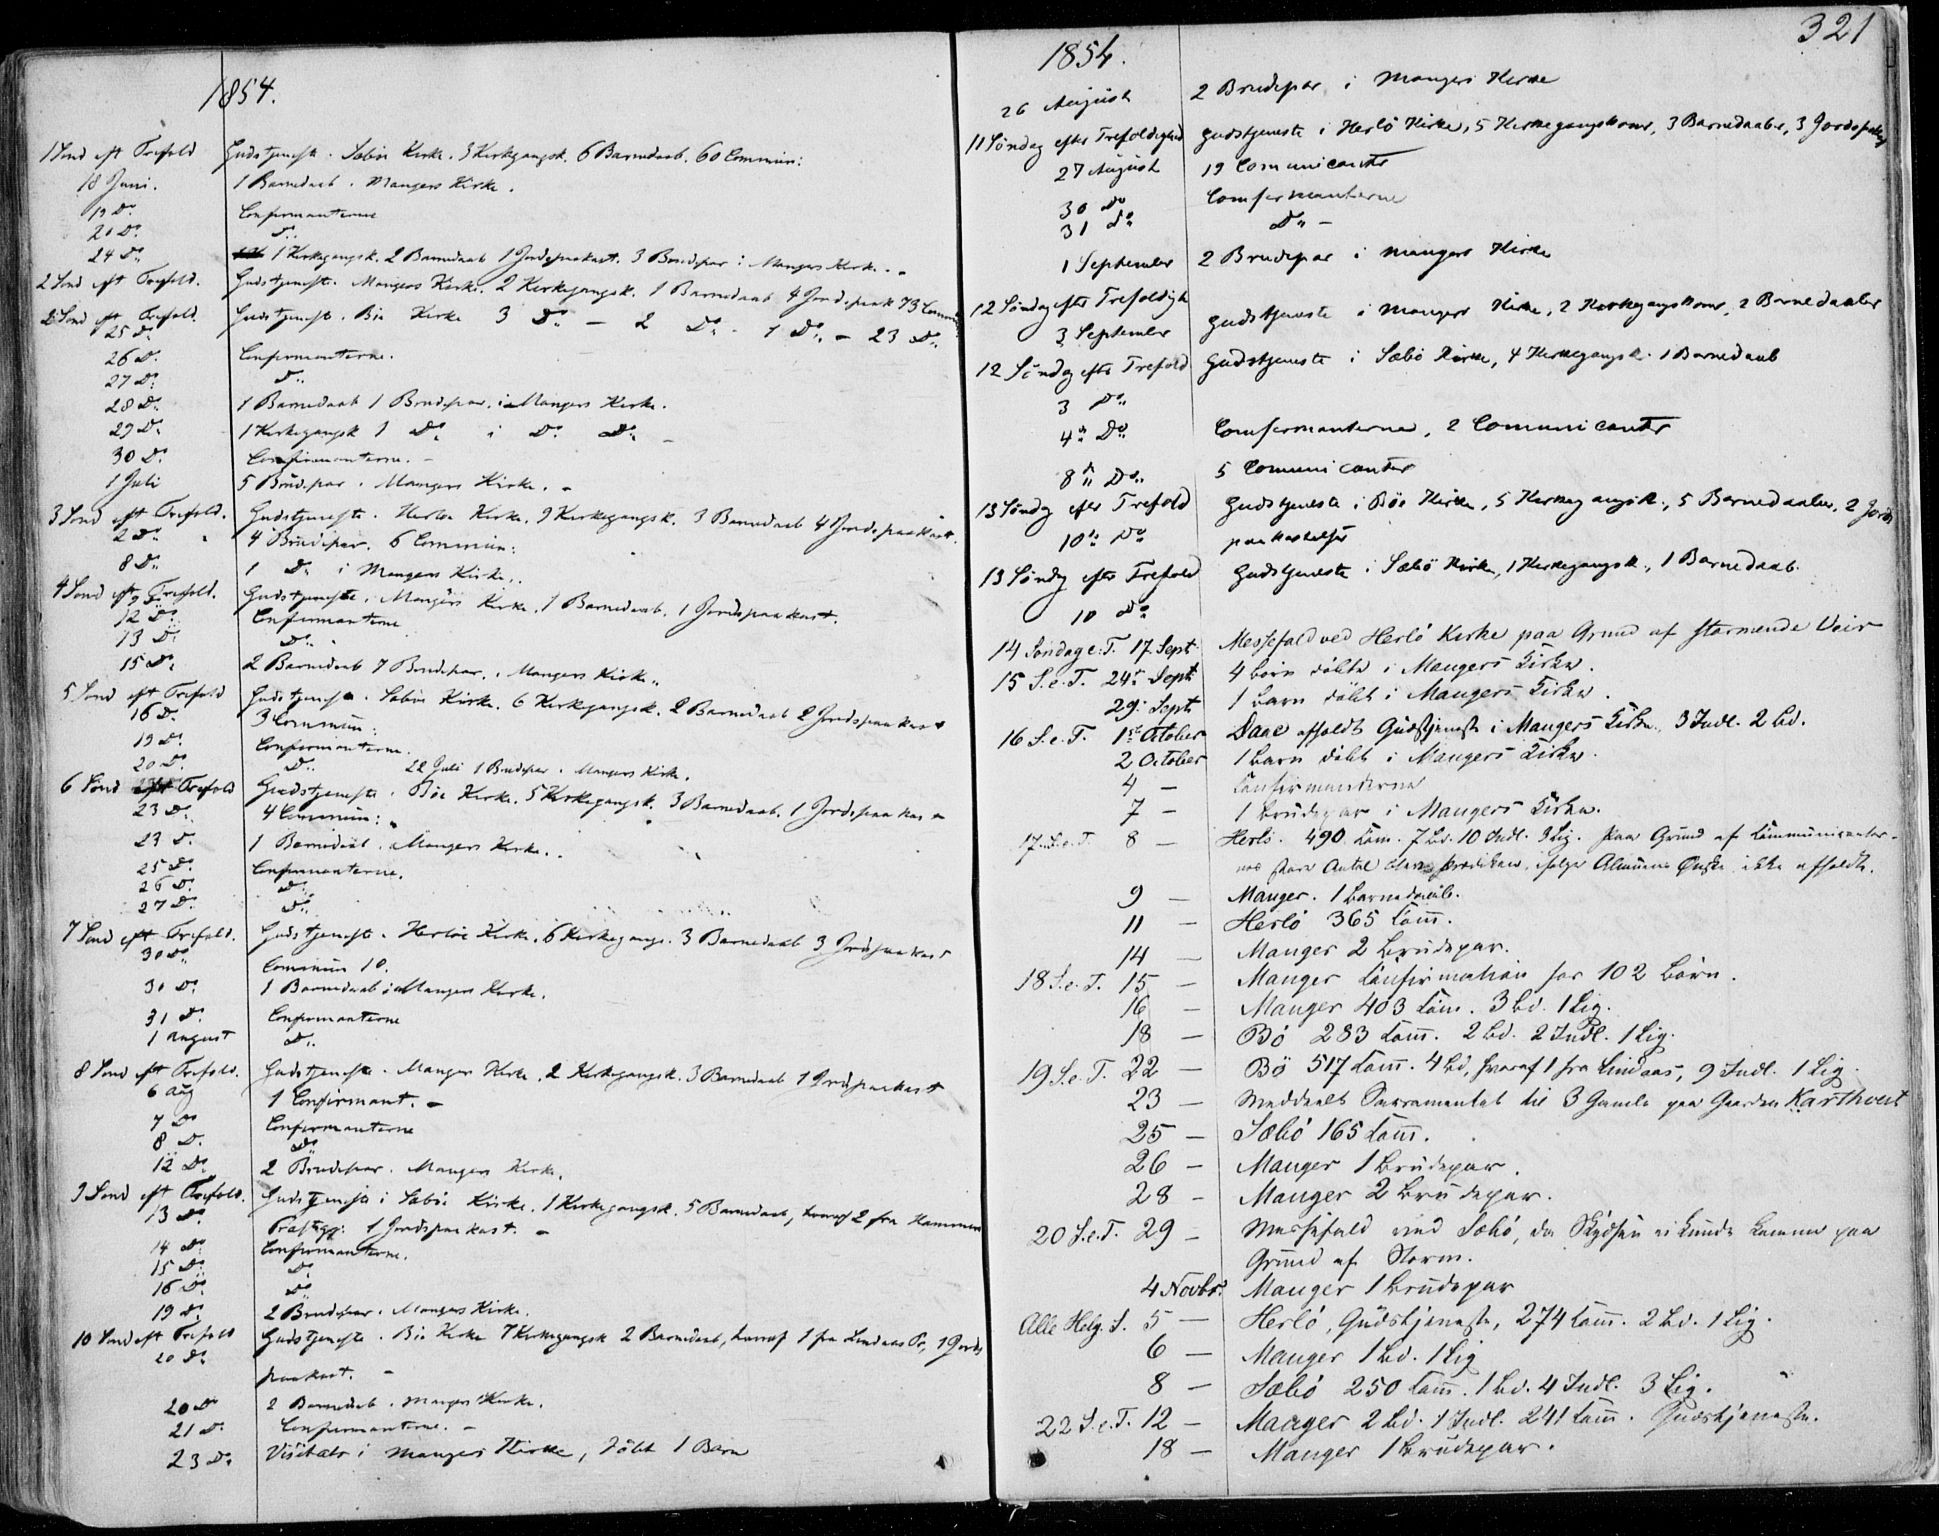 1854.
1 Sønd eft Trefold Gudstjeneste i Sæbøe Kirke. 3 Kirkegangsk. 6 Barnedaab. 60 Commun:
18 Juni. 1 Barnedaab i Mangers Kirke.
19 Do Confirmanterne
20 Do Do
24 Do 1 Kirkegangsk. 2 Barnedaab 1 Jordspaakast. 3 Brudepar i Mangers Kirke.
2 Sønd eft Trefold. Gudstjeneste i Mangers Kirke. 2 Kirkegangsk. 1 Barnedaab 4 Jordspaak 73 Commun
2 Sønd eft Trefold. Gudstjeneste i Böe Kirke 3 Do - 2 Do - 1 Do - 23 Do
25 Do
26 Do Confirmanterne.
27 Do Do
28 Do 1 Barnedaab 1 Brudepar i Mangers Kirke.
29 Do 1 Kirkegangsk 1 Do i Do Do
30 Do Confirmanterne. -
1 Juli 5 Brudepar i Mangers Kirke. -
3 Sønd eft Trefold. Gudstjeneste i Herløe Kirke. 9 Kirkegangsk. 3 Barnedaab 4 Jordspaakast.
2 Do 4 Brudepar. 6 Commun:
8 Do 1 Do i Mangers Kirke.
4 Sønd eft Trefold. Gudstjeneste i Mangers Kirke. 1 Barnedaab. 1 Jordspaakast.
12 Do Confirmanterne
13 Do Do
15 Do 2 Barnedaab 7 Brudepar i Mangers Kirke.
5 Sønd eft Trefold Gudstjeneste i Sæbøe Kirke. 6 Kirkegangsk. 2 Barnedaab 2 Jordspaakast
16 Do 3 Commun:
19 Do Confirmanterne.
20 Do Do 22 Juli 1 Brudepar i Mangers Kirke.
6 Sønd eft Trefold Gudstjeneste i Böe Kirke. 5 Kirkegangsk. 3 Barnedaab. 1 Jordspaakast
23 Do 4 Commun:
23 Do 1 Barnedaab i Mangers Kirke.
25 Do Confirmanterne.
26 Do Do
27 Do Do
7 Sønd eft Trefold. Gudstjeneste i Herløe Kirke. 6 Kirkegangs. 3 Barnedaab 3 Jordspaakast
30 Do Commun 10.
30 Do 1 Barnedaab i Mangers Kirke.
31 Do Confirmanterne
1 August Do
8 Sønd eft Trefold. Gudstjeneste i Manger Kirke. 2 Kirkegangsk. 3 Barnedaab 1 Jordspaakast
6 Aug 1 Confirmant. -
7 Do Confirmanterne
8 Do Do
12 Do 2 Brudepar i Mangers Kirke.
9 Sønd eft Trefold. Gudstjeneste i Sæbøe Kirke. 1 Kirkegangsk. 5 Barnedaab, hvoraf 2 fra Hammers
13 Do Præstegj: 1 Jordspaakast. -
14 Do Confirmanterne.
15 Do Do
16 Do Do
19 Do 2 Brudepar i Mangers Kirke.
10 Sønd eft Trefold Gudstjeneste i Böe Kirke 7 Kirkegangsk 2 Barnedaab, hvoraf 1 fra Lindaas Pr, 1 Jords
20 Do paakast. -
20 Do 2 Barnedaab i Mangers Kirke.
21 Do Confirmanterne. -
23 Do Visitats i Mangers Kirke, döbt 1 Barn
321
1854.
26 August 2 Brudepar i Mangers Kirke
11 Søndag efter Trefoldighed Gudstjeneste i Herlö Kirke, 5 Kirkegangskoner, 3 Barnedaaber, 3 Jordspaak
27 August 19 Comunicanter
30 Do Comfirmanterne
31 Do Do -
1 September 2 Brudepar i Mangers Kirke
12 Søndag efter Trefoldigh Gudstjeneste i Mangers Kirke, 2 Kirkegangskoner, 2 Barnedaaber
3 September
12 Søndag efter Trefold Gudstjeneste i Sæbö Kirke, 4 Kirkegangsk. 1 Barnedaab
3 Do
4 Do Comfirmanterne, 2 Comunicanter
8 Do 5 Comunicanter
13 Søndag efter Trefold Gudstjeneste i Böe Kirke, 5 Kirkegangsk., 5 Barnedaaber, 2 Jords
10 Do paakastelser
13 Søndag efter Trefold Gudstjeneste i Sæbö Kirke, 1 Kirkegangsk., 1 Barnedaab.
10 Do
14 Søndag e. T. 17 Sept. Messefald ved Herlö Kirke paa Grund af stormende Veir
15 S. e. T. 24 Sept. 4 börn döbte i Mangers Kirke.
29 Sept 1 barn döbt i Mangers Kirke.
16 S. e. T. 1 October Daae afholdt Gudstjeneste i Mangers Kirke. 3 Indl. 2 bd.
2 October 1 barn döbt i Mangers Kirke.
4 - Confirmanterne
7 - 1 brudepar i Mangers Kirke.
17. S. e. T. 8 - Herlö. 490 Com. 7 bd. 10 Indl. 3 Lig. paa Grund af Communicanter-
nes store Antal blev Prædiken, ifølge Almuens Ønske ikke afholdt.
9 - Manger. 1 barnedaab.
11 - Herlö 365 Com.
14 - Manger 2 brudepar.
18 S. e. T. 15 - Manger Confirmation for 102 börn.
16 - Manger 403 Com. 3 bd. 1 Lig.
18 - Bö 283 Com. 2 bd. 2 Indl. 1 Lig.
19 S. e. T. 22 - Bö 517 Com. 4 bd, hvoraf 1 fra Lindaas, 9 Indl. 1 Lig.
23 - Meddeelt Sacramentet til 3 Gamle paa Gaarden Karthveit
25 - Sæbö 165 Com.
26 - Manger 1 brudepar.
28 - Manger 2 brudepar.
20 S. e. T. 29 - Messefald ved Sæbö, da Skydsen ei kunde komme paa
Grund af Storm.
4 Novbr. Manger 1 brudepar
Alle Helg. S. 5 - Herlö, Gudstjeneste, 274 Com. 2 bd. 1 Lig.
6 - Manger 1 bd. 1 Lig
8 - Sæbö 250 Com. 1 bd. 4 Indl. 3 Lig.
22 S. e. T. 12 - Manger 2 bd. 1 Indl. 241 Com. Gudstjeneste.
18 - Manger 1 brudepar.